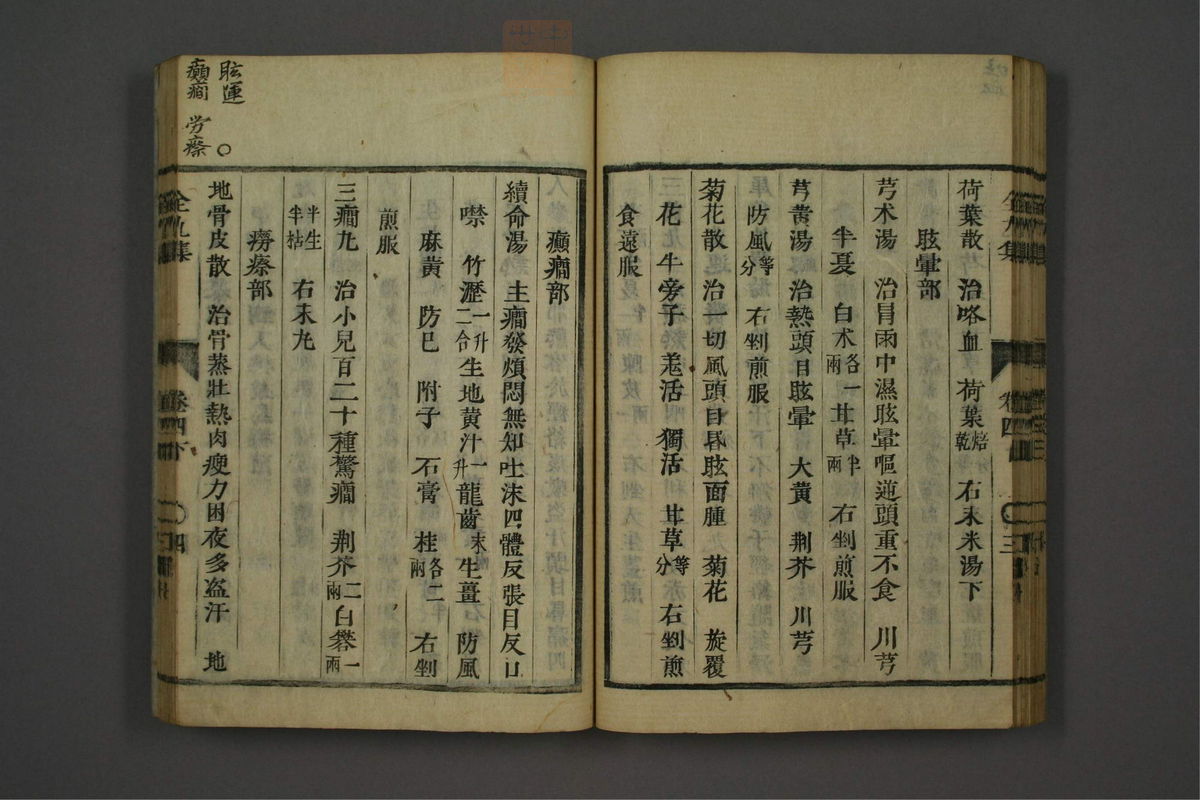 荷葉散 治咯血 荷葉焙乾 右末米湯下
眩暈部
芎朮湯 治冒雨中濕眩暈嘔逆頭重不食 川芎
半夏 白朮各一兩 甘草半兩 右剉煎服
芎黃湯 治熱頭目眩暈 大黃 荆芥 川芎
防風等分 右剉煎服
菊花散 治一切風頭目昏眩面腫 菊花 旋覆
花 牛旁子 羌活 獨活 甘草等分 右剉煎
食遠服
眩運
癲癇 労瘵
癲癇部
續命湯 主癇發煩悶無知吐沫四體反張目反口
噤 竹瀝一升二合 生地黃汁一升 龍齒末 生薑 防風
麻黃 防已 附子 石膏 桂各二兩 右剉
煎服
三癇丸 治小兒百二十種驚癇 荆芥二兩 白礬一兩
半生半枯 右末丸
癆瘵部
地骨皮散 治骨蒸壯熱肉瘦力困夜多盗汗 地
全九集
卷四下
三
全九集
卷四下
四